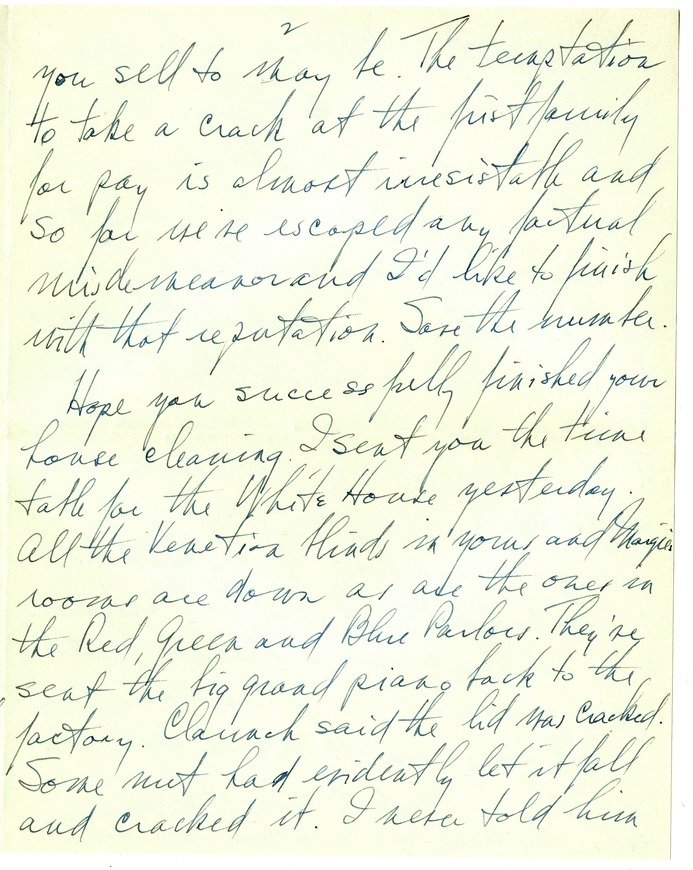 2
you sell to may be. The temptation
to take a crack at the first family
for pay is almost irresistable and
so far we've escaped any factual
misdemeanor and I'd like to finish
with that reputation. Save the number.
Hope you successfully finished your
house cleaning. I sent you the time
table for the White House yesterday.
All the Venetian blinds in yours and Margie's
rooms are down as are the ones in
the Red, Green and Blue Parlors. They've
sent the big grand piano back to the
factory. Claunch said the lid was cracked.
Some nut had evidently let it fall
and cracked it. I never told him